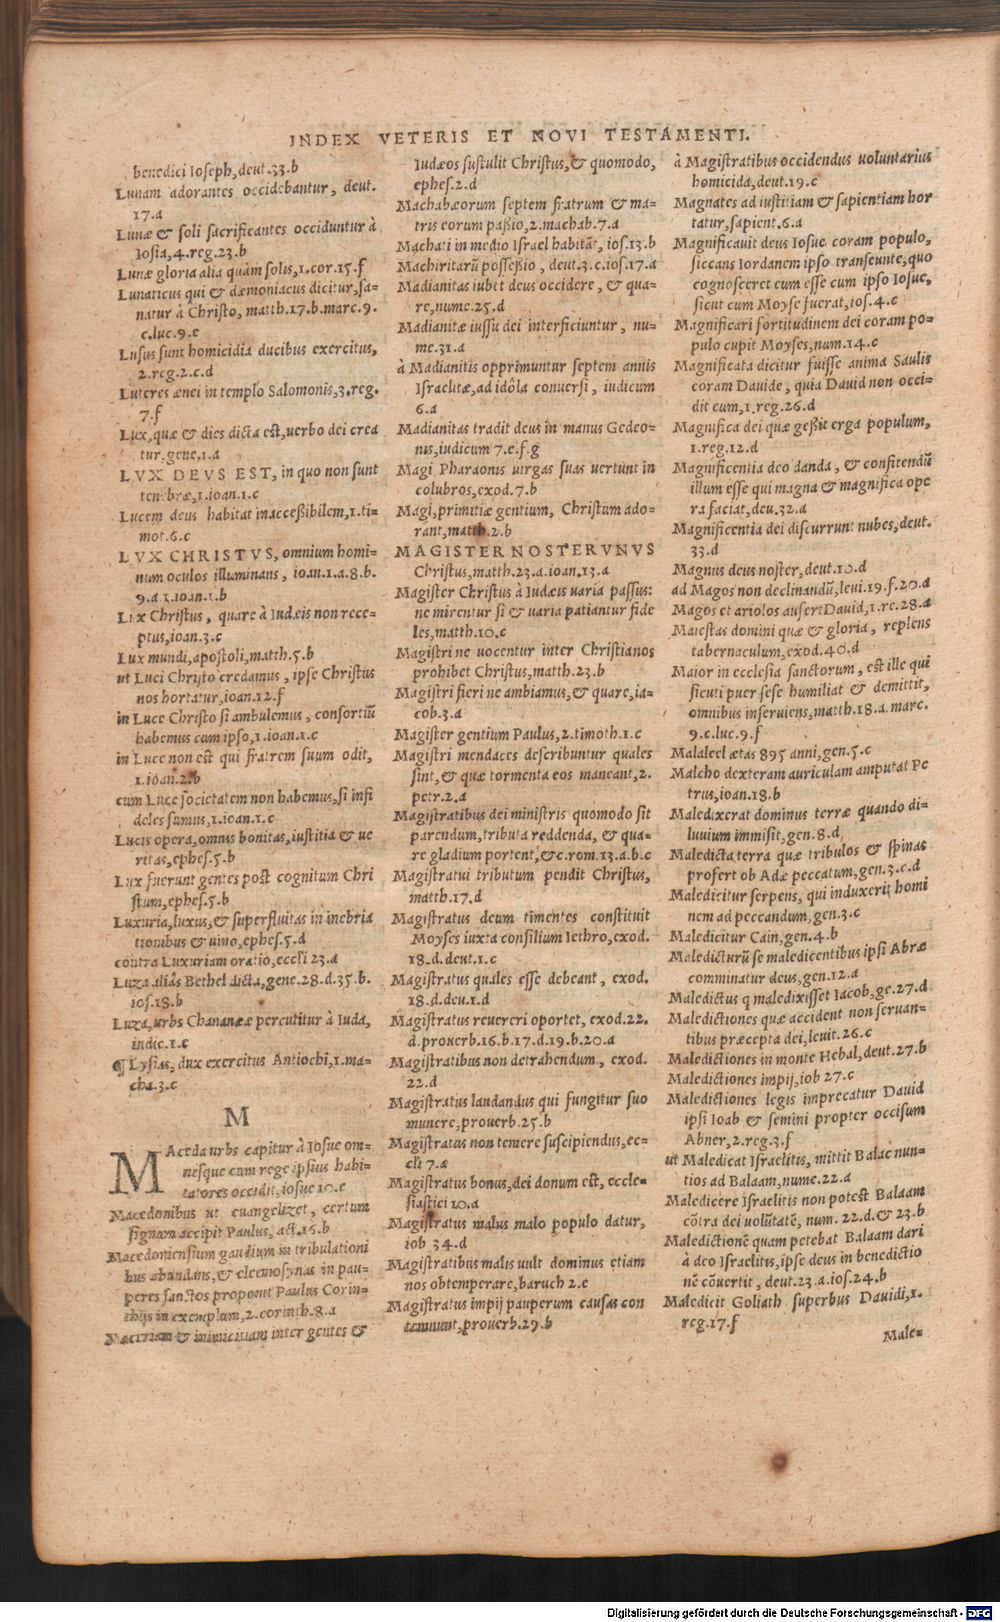 INDEX VETERIS ET NOVI TESTAMENTI.
benedici Ioseph, deut.33.b
Lunam adorantes occidebantur, deut.
17.a
Lunæ & soli sacrificantes occiduntur à
Iosia, 4.reg.23.b
Lunæ gloria alia quàm solis, 1.cor.15.f
Lunaticus qui & dæmoniacus dicitur, sa-
natur à Christo, matth.17.b.marc.9.
c.luc.9.e
Lusus sunt homicidia ducibus exercitus,
2.reg.2.c.d
Luteres ænei in templo Salomonis, 3.reg.
7.f
Lux, quæ & dies dicta est, uerbo dei crea
tur, gene.1.a
LVX DEVS EST, in quo non sunt
tenebræ, 1.ioan.1.c
Lucem deus habitat inaccessibilem, 1.ti-
mot.6.c
LVX CHRISTVS, omnium homi-
num oculos illuminans, ioan.1.a.8.b.
9.a 1.ioan.1.b
Lux Christus, quare à Iudæis non rece-
ptus, ioan.3.c
Lux mundi, apostoli, matth.5.b
ut Luci Christo credamus, ipse Christus
nos hortatur, ioan.12.f
in Luce Christo si ambulemus, consortiũ
habemus cum ipso, 1.ioan.1.c
in Luce non est qui fratrem suum odit,
1.ioan.2.b
cum Luce societatem non habemus, si infi
deles sumus, 1.ioan.1.c
Lucis opera, omnus bonitas, iustitia & ue
ritas, ephes.5.b
Lux fuerunt gentes post cognitum Chri
stum, ephes.5.b
Luxuria, luxus, & superfluitas in inebria
tionibus & uino, ephes.5.d
contra Luxuriam oratio, eccli 23.a
Luza aliás Bethel dicta, gene.28.d.35.b.
ios.18.b
Luza, urbs Chananææ percutitur à Iuda,
iudic.1.c
¶ Lysias, dux exercitus Antiochi, 1.ma-
cha.3.c
M
MAceda urbs capitur à Iosue om-
nesque cum rege ipsius habi-
tatores occidit, iosue 10.e
Macedonibus ut euangelizet, certum
signum accipit Paulus, act.16.b
Macedoniensium gaudium in tribulationi
bus abundans, & eleemosynas in pau-
peres sanctos proponit Paulus Corin-
thijs in exemplum, 2.corinth.8.a
Maceriam & inimicitiam inter gentes &
Iudæos sustulit Christus, & quomodo,
ephes.2.d
Machabæorum septem fratrum & ma-
tris eorum passio, 2.machab.7.a
Machati in medio Israel habitãt, ios.13.b
Machiritarũ possessio, deut.3.c.ios.17.a
Madianitas iubet deus occidere, & qua-
re, nume.25.d
Madianitæ iussu dei interficiuntur, nu-
me.31.a
à Madianitis opprimuntur septem annis
Israelitæ, ad idôla conuersi, iudicum
6.a
Madianitas tradit deus in manus Gedeo-
nis, iudicum 7.e.f.g
Magi Pharaonis uirgas suas uertunt in
colubros, exod.7.b
Magi, primitiæ gentium, Christum ado-
rant, matth.2.b
MAGISTER NOSTER VNVS
Christus, matth.23.a.ioan.13.a
Magister Christus à Iudæis uaria passus:
ne mirentur si & uaria patiantur fide
les, matth.10.c
Magistri ne uocentur inter Christianos
prohibet Christus, matth.23.b
Magistri fieri ne ambiamus, & quare, ia-
cob.3.a
Magister gentium Paulus, 2.timoth.1.c
Magistri mendaces describuntur quales
sint, & quæ tormenta eos maneant, 2.
petr.2.a
Magistratibus dei ministris quomodo sit
parendum, tributa reddenda, & qua-
re gladium portent, &c.rom.13.a.b.c
Magistratui tributum pendit Christus,
matth.17.d
Magistratus deum timentes constituit
Moyses iuxta consilium Iethro, exod.
18.d.deut.1.c
Magistratus quales esse debeant, exod.
18.d.deu.1.d
Magistratus reuereri oportet, exod.22.
d.prouerb.16.b.17.d.19.b.20.a
Magistratibus non detrahendum, exod.
22.d
Magistratus laudandus qui fungitur suo
munere, prouerb.25.b
Magistratus non temere suscipiendus, ec-
cli 7.a
Magistratus bonus, dei donum est, eccle-
siastici 10.a
Magistratus malus malo populo datur,
iob 34.d
Magistratibus malis uult dominus etiam
nos obtemperare, baruch 2.e
Magistratus impij pauperum causas con
temnunt, prouerb.29.b
à Magistratibus occidendus uoluntarius
homicida, deut.19.c
Magnates ad iustitiam & sapientiam hor
tatur, sapient.6.a
Magnificauit deus Iosue coram populo,
siccans Iordanem ipso transeunte, quo
cognosceret eum esse cum ipso Iosue,
sicut cum Moyse fuerat, ios.4.c
Magnificari fortitudinem dei coram po-
pulo cupit Moyses, num.14.c
Magnificata dicitur fuisse anima Saulis
coram Dauide, quia Dauid non occi-
dit eum, 1.reg.26.d
Magnifica dei quæ gessit erga populum,
1.reg.12.d
Magnificentia deo danda, & confitendũ
illum esse qui magna & magnifica ope
ra faciat, deu.32.a
Magnificentia dei discurrunt nubes, deut.
33.d
Magnus deus noster, deut.10.d
ad Magos non declinandũ, leui.19.f.20.a
Magos et ariolos aufert Dauid, 1.re.28.a
Maiestas domini quæ & gloria, replens
tabernaculum, exod.40.d
Maior in ecclesia sanctorum, est ille qui
sicuti puer sese humiliat & demittit,
omnibus inseruiens, matth.18.a.marc.
9.e.luc.9.f
Malaleel ætas 895 anni, gen.5.c
Malcho dexteram auriculam amputat Pe
trus, ioan.18.b
Maledixerat dominus terræ quando di-
luuium immisit, gen.8.d
Maledicta terra quæ tribulos & spinas
profert ob Adæ peccatum, gen.3.c.d
Maledicitur serpens, qui induxerit homi
nem ad peccandum, gen.3.c
Maledicitur Cain, gen.4.b
Maledicturũ se maledicentibus ipsi Abræ
comminatur deus, gen.12.a
Maledictus q maledixisset Iacob, ge.27.d
Maledictiones quæ accident non seruan-
tibus præcepta dei, leuit.26.c
Maledictiones in monte Hebal, deut.27.b
Maledictiones impij, iob 27.c
Maledictiones legis imprecatur Dauid
ipsi Ioab & semini propter occisum
Abner, 2.reg.3.f
ut Maledicat Israelitis, mittit Balac nun-
tios ad Balaam, nume.22.a
Maledicere Israelitis non potest Balaam
cõtra dei volũtatẽ, num. 22.d.& 23.b
Maledictionẽ quam petebat Balaam dari
à deo Israelitis, ipse deus in benedictio
nẽ cõuertit, deut.23.a.ios.24.b
Maledicit Goliath superbus Dauidi, 1.
reg.17.f
Male-
Digitalisierung gefördert durch die Deutsche Forschungsgemeinschaft - DFG